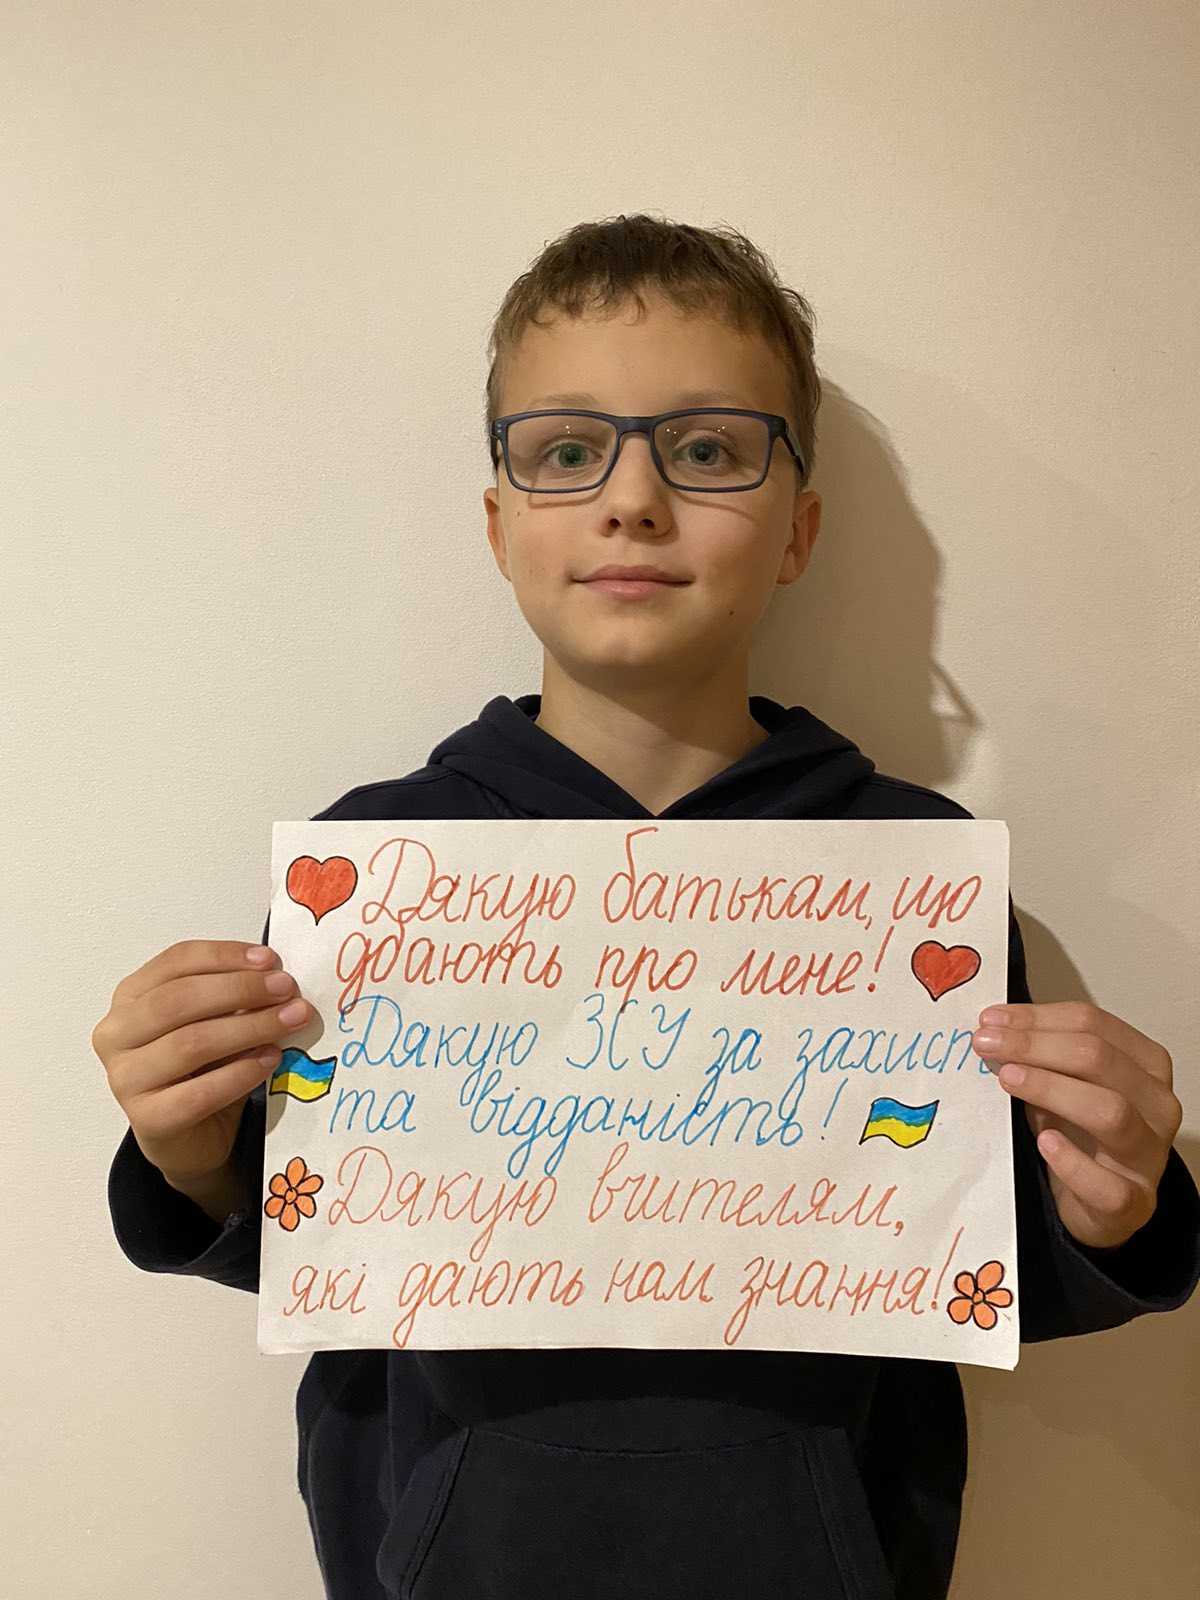 Дякую батькам, що
дбають про мене!
Дякую ЗСУ за захист
та відданість!
Дякую вчителям,
які дають нам знання!